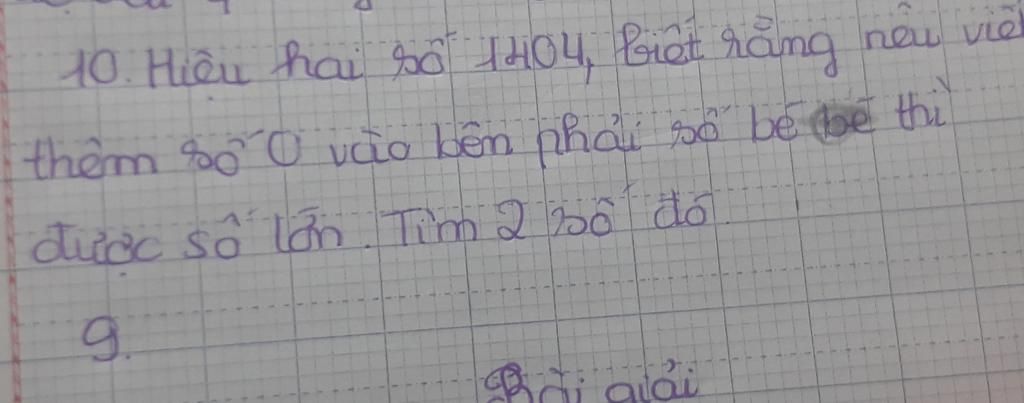 10. Hiệu hai số 1404, Biết rằng nếu viế
thêm số 0 vào bên phải số bé bé thì
được số lớn. Tìm 2 số đó.
9.
Bài giải